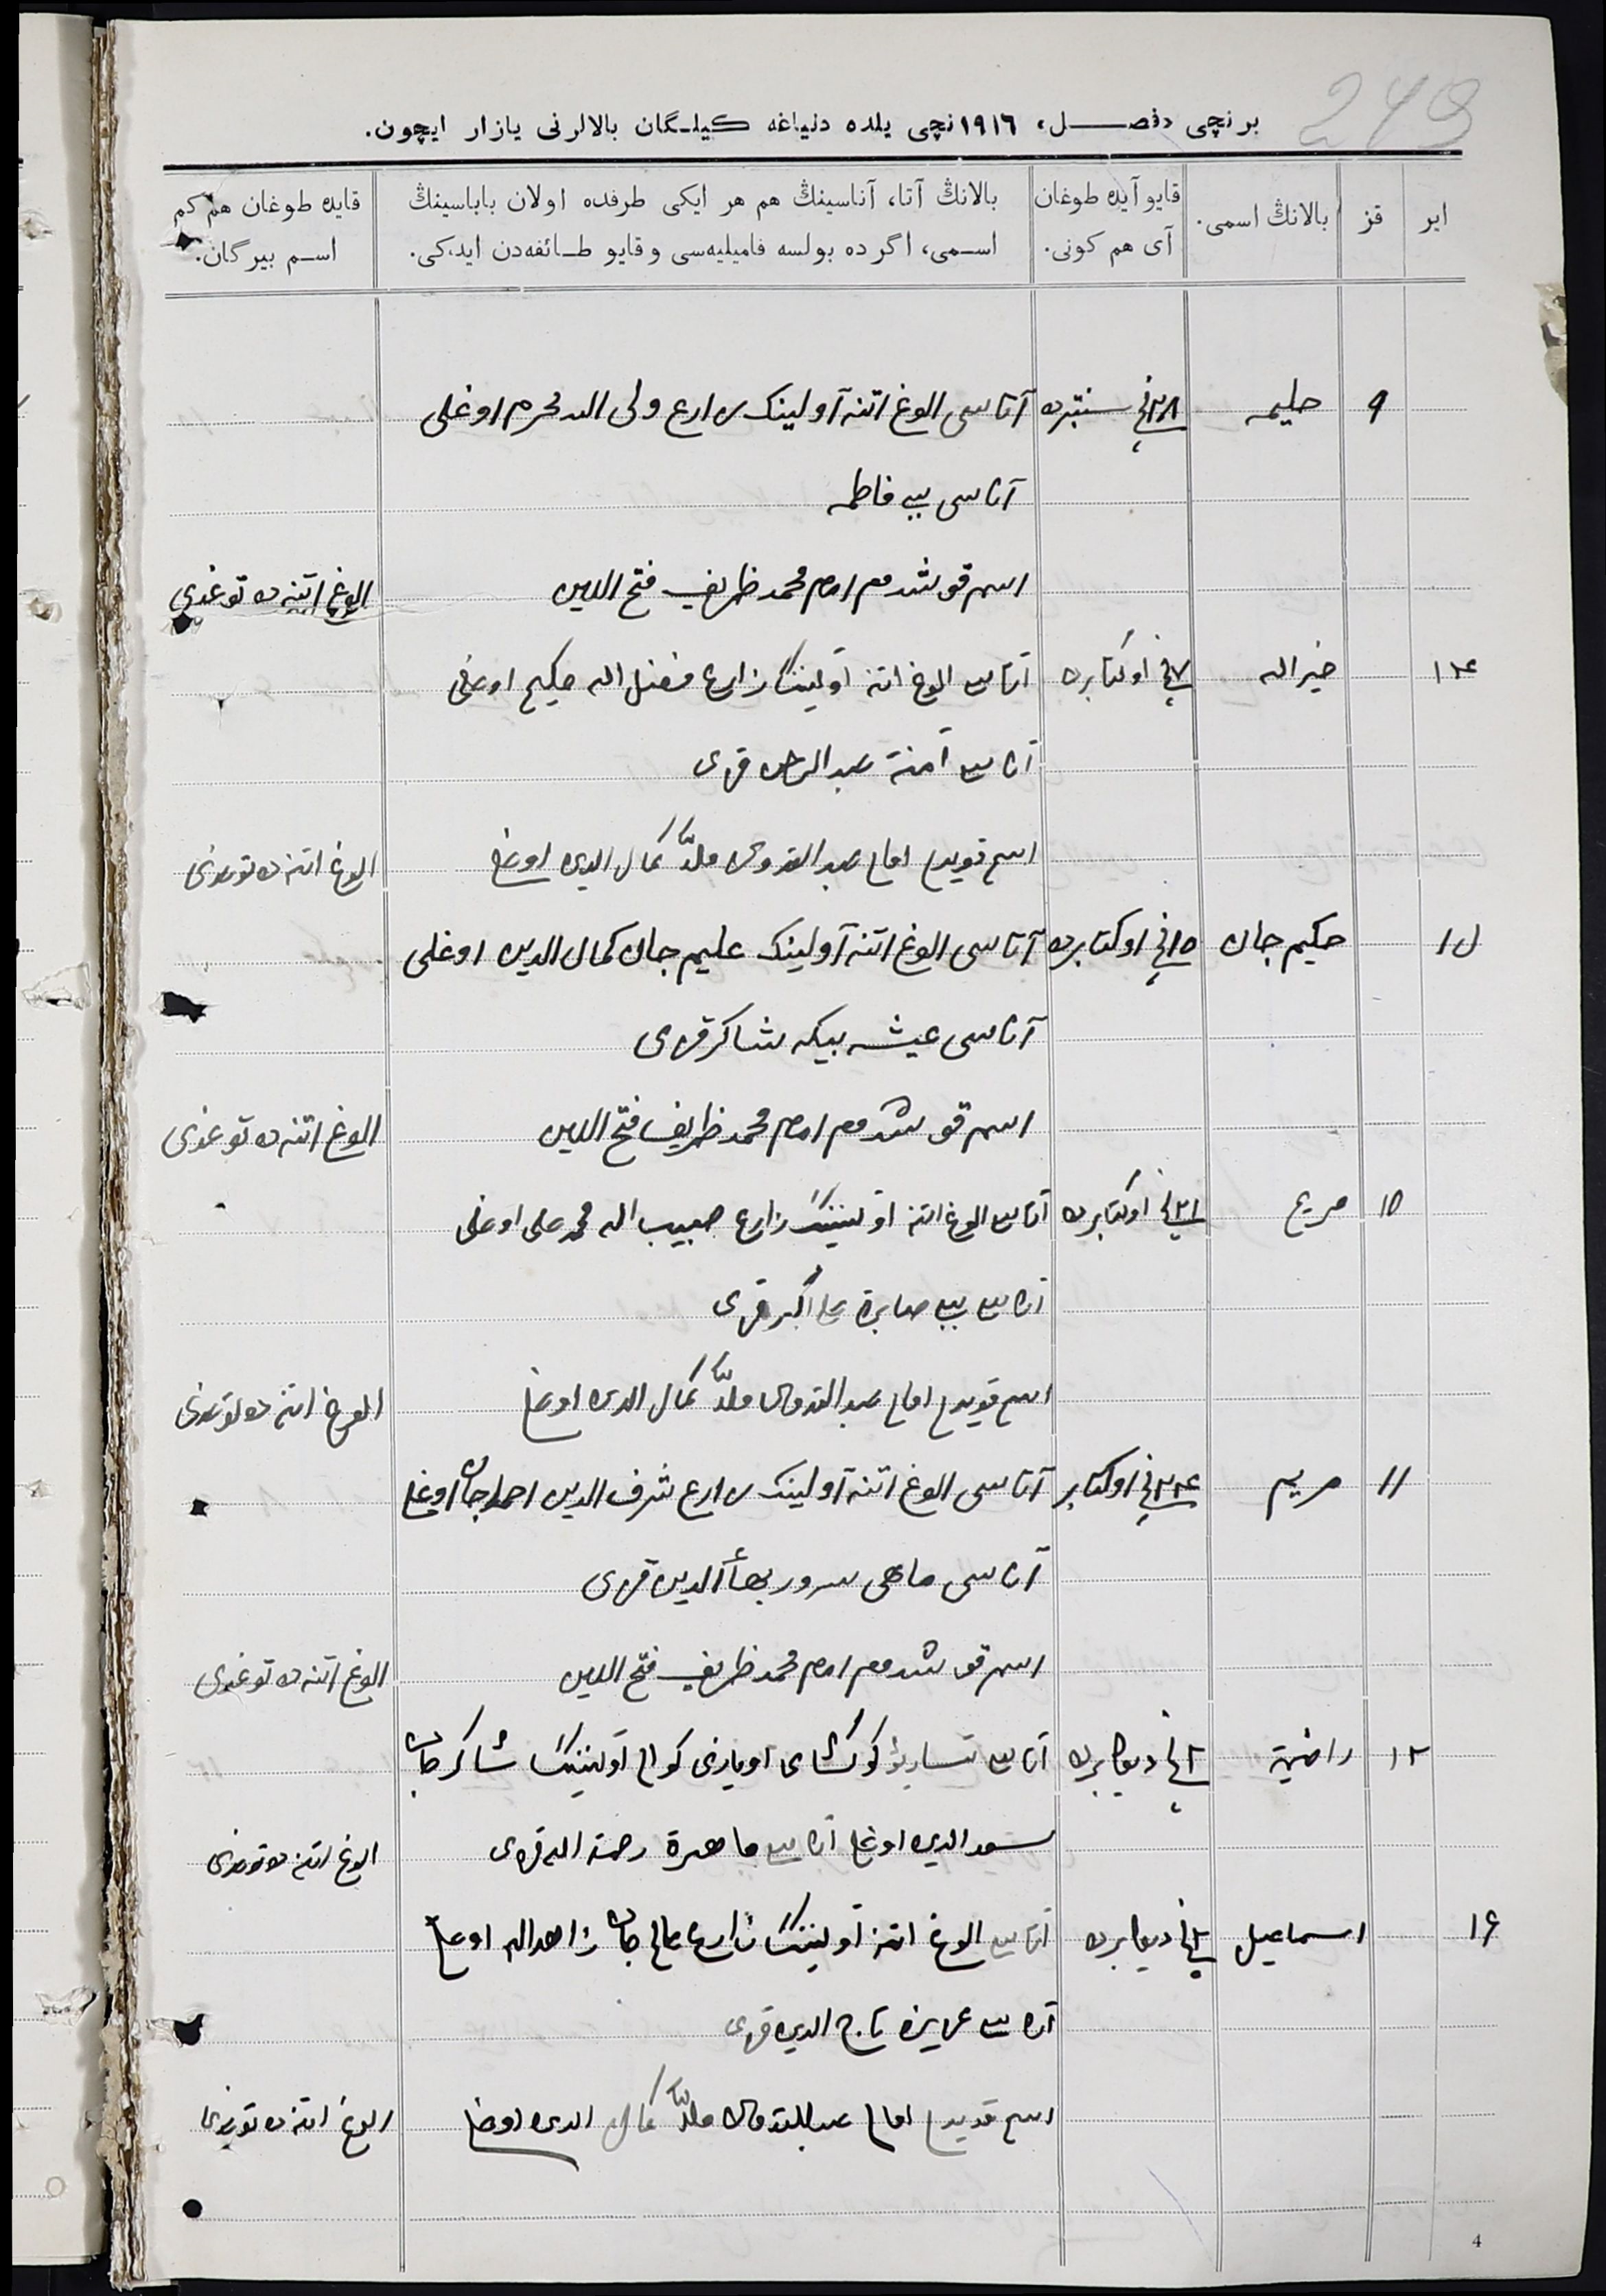 249
برنچی «فصـــل» ١٩١٦نچی یلده دنیاغه کیلـگان بالالرنی یازار ایچون.
ایر
قز
بالانڭ اسمی.
قایو آیده طوغان
آی هم کونی.
بالانڭ آتا، آناسینڭ هم هر ایکی طرفده اولان باباسینڭ
اسـمی، اگر ده بولسه فامیلیه‌سی و قایو طـائفه‌دن ایدیکی.
قایده طوغان هم کم
اسـم بیرگان.
٩ حلیمه ٢٨نچی سنتبرده آتاسی الوغ اتنه آولینک زارع ولی الله محرم اوغلی
آناسی بیبی فاطمه
اسم قوشدم امام محمد ظریف فتح الدین الوغ اتنه ده توغدی
١٤ خیر الله ٧نچی اوکتابرده آتاسی الوغ اتنه اولینڭ زارع فضل الله حکیم اوغلی
آناسی آمنة عبد الرحمن قزی
اسم قویدم امام عبد القدوس ملا کمال الدین اوغلی الوغ اتنه ده توغدی
حکیم جان ١٥نچی اوکتابرده آتاسی الوغ اتنه آولینک علیم جان کمال الدین اوغلی
آناسی عیشه بیکه شاکر قزی
اسم قوشدم امام محمد ظریف فتح الدین الوغ اتنه ده توغدی
١٠ مریم ٢١نچی اوکتابرده آتاسی الوغ اتنه اولیننڭ زارع حبیب الله محمد علی اوغلی
آناسی بیبی صابرة علی اکبر قزی
اسم قویدم امام عبد القدوس ملا کمال الدین اوغلی الوغ اتنه ده توغدی
١١ مریم ٢٤نچی اوکتابر آتاسی الوغ اتنه آولینک زارع شرف الدین احمد جان اوغلی
آناسی ماهی سرور بهاء الدین قزی
اسم قوشدم امام محمد ظریف فتح الدین الوغ اتنه ده توغدی
١٢ راضیة ٢نچی دیکابرده آتاسی اویازی اولیننڭ شاکر جان
سعد الدین اوغلی آناسی ماهرة رحمة الله قزی الوغ اتنه ده توغدی
١٦ اسماعیل دیکابرده آتاسی الوغ اتنه اولیننڭ زارع جان زاهد الله اوغلی
آناسی عزیزه تاج الدین قزی
اسم قویدم امام عبد القدوس ملا کمال الدین اوغلی الوغ اتنه ده توغدی
4